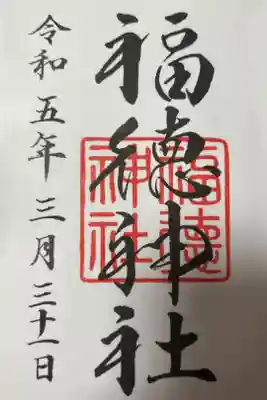 福徳神社
令和五年三月三十一日
福徳
神社